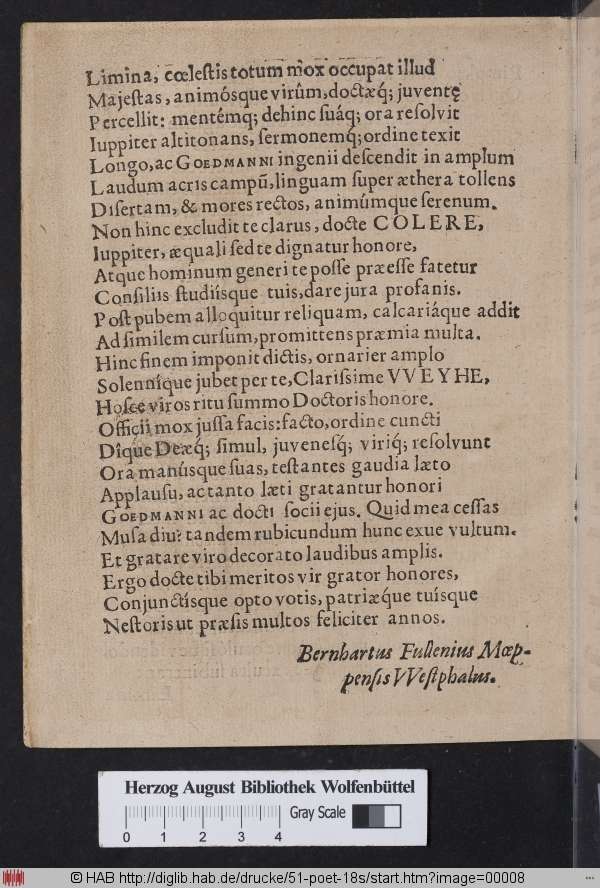 Limina, cœlestis totum mòx occupat illud
Majestas, animósque virûm, doctæq́; juventę
Percellit: mentémq́; dehinc suáq́; ora resolvit
Iuppiter altitonans, sermonemq́; ordine texit
Longo, ac GOEDMANNI ingenii descendit in amplum
Laudum acris campũ, linguam super æthera tollens
Disertam, & mores rectos, animúmque serenum.
Non hinc excludit te clarus, docte COLERE,
Iuppiter, æquali sed te dignatur honore,
Atque hominum generi te posse præesse fatetur
Consiliis studiísque tuis, dare jura profanis.
Post pubem alloquitur reliquam, calcariáque addit
Ad similem cursum, promittens præmia multa.
Hinc finem imponit dictis, ornarier amplo
Solenníque jubet per te, Clarissime VVEYHE,
Hosce viros ritu summo Doctoris honore.
Officii mox jussa facis: facto, ordine cuncti
Dîque Deæq́; simul, juvenesq́; viriq́; resolvunt
Ora manúsque suas, testantes gaudia læto
Applausu, ac tanto læti gratantur honori
GOEDMANNI ac docti socii ejus. Quid mea cessas
Musa diu? tandem rubicundum hunc exue vultum.
Et gratare viro decorato laudibus amplis.
Ergo docte tibi meritos vir grator honores,
Conjunctísque opto votis, patriæque tuísque
Nestoris ut præsis multos feliciter annos.
Bernhartus Fullenius Mœp-
pensis VVestphalus.
Herzog August Bibliothek Wolfenbüttel
Gray Scale
0 1 2 3 4
© HAB http://diglib.hab.de/drucke/51-poet-18s/start.htm?image=00008